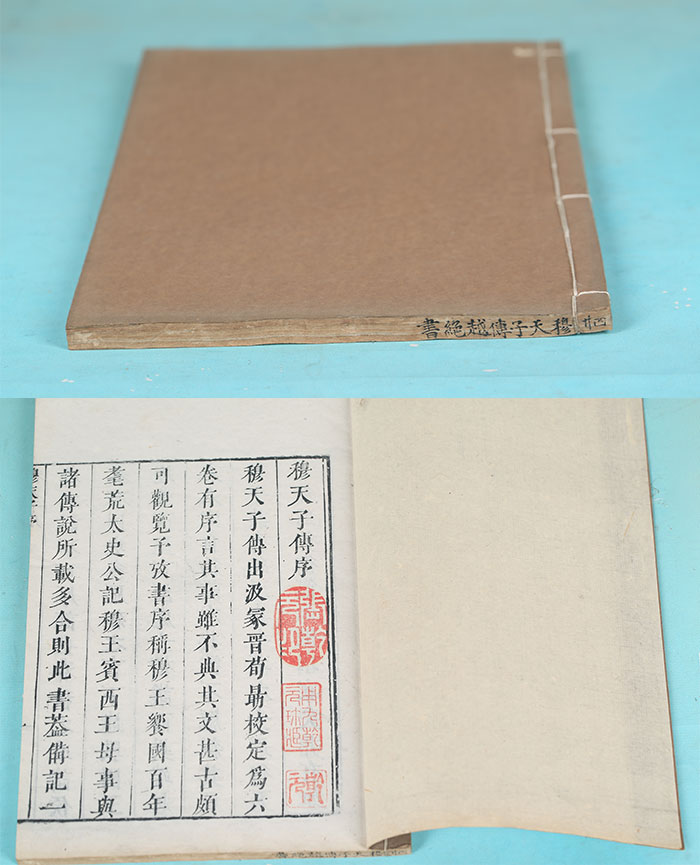 穆天子傳越絕書
廿四
穆天子傳序
穆天子傳出汲冢晉荀勗校定爲六
卷有序言其事雖不典其文甚古頗
可觀覽予攷書序稱穆王饗國百年
耄荒太史公記穆王賓西王母事與
諸傳說所載多合則此書葢備記一
穆天子序